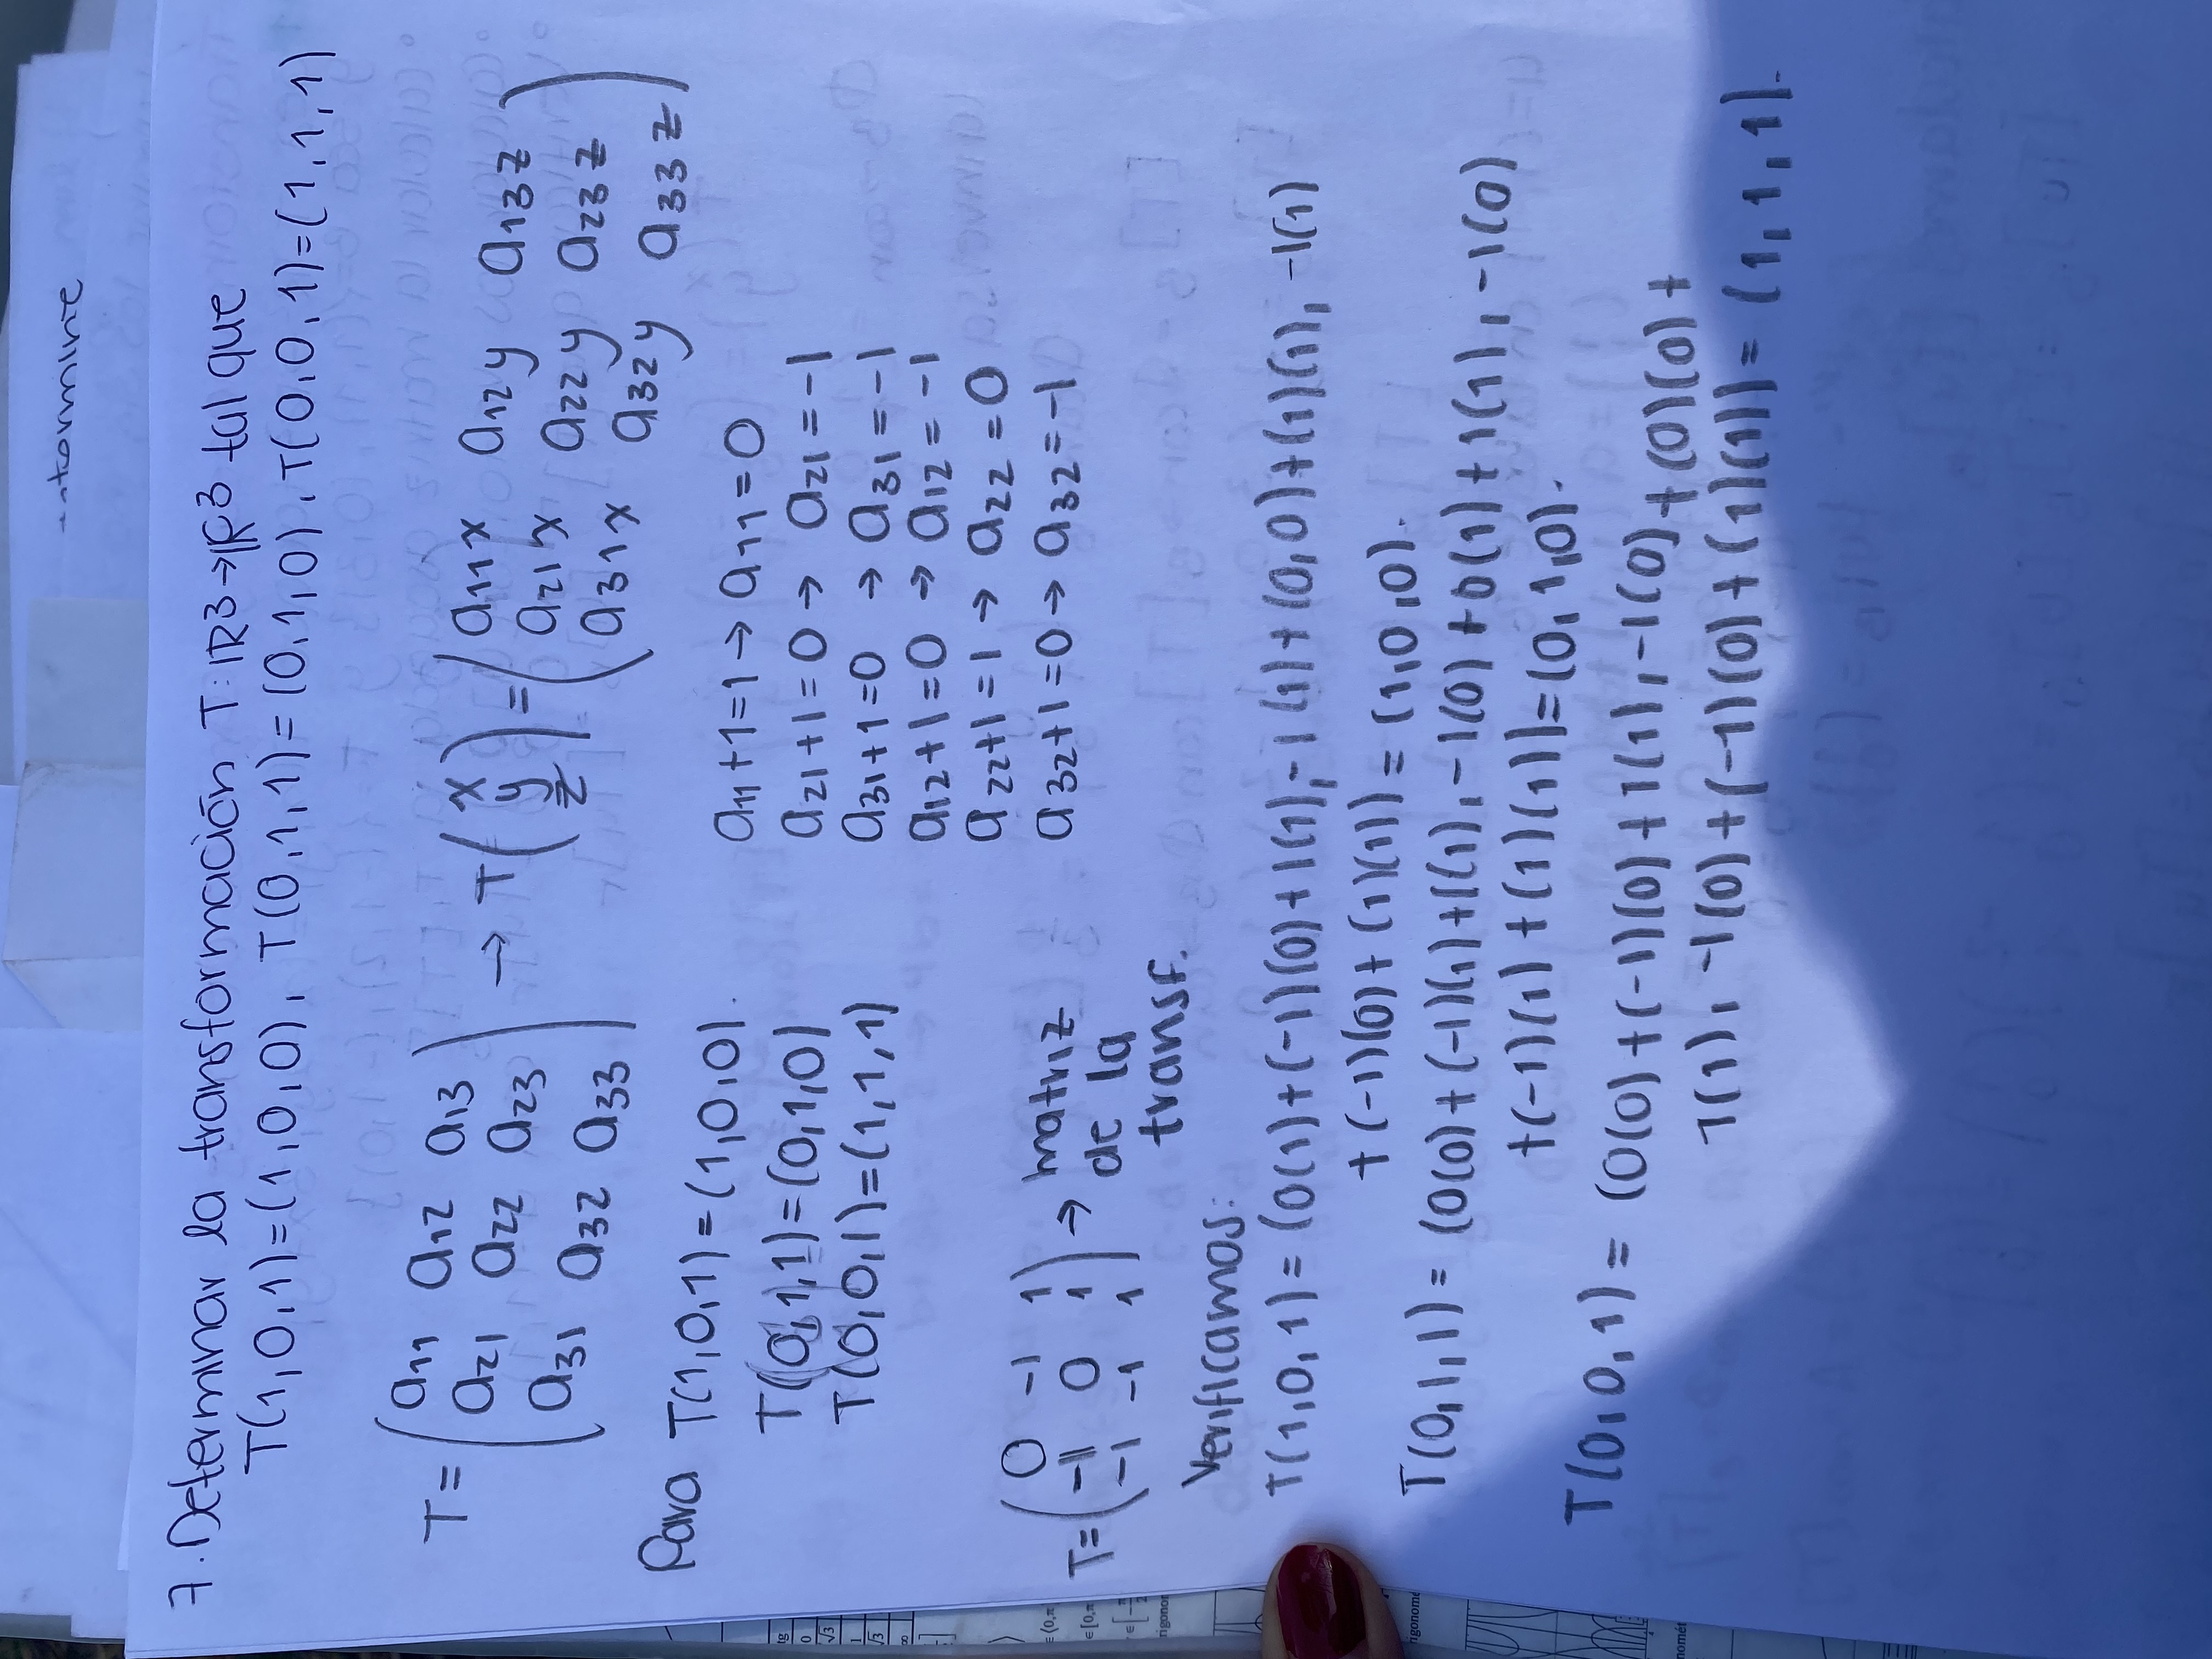 -ntormine
7. Determinar la transformación T: ℝ3→ℝ3 tal que
T(1,0,1)=(1,0,0), T(0,1,1)=(0,1,0), T(0,0,1)=(1,1,1)
T= ( a11 a12 a13
a21 a22 a23
a31 a32 a33 ) → T ( x y z ) = ( a11x a12y a13z
a21x a22y a23z
a31x a32y a33z )
Para T(1,0,1)=(1,0,0).
T(0,1,1)=(0,1,0)
T(0,0,1)=(1,1,1)
a11+1=1→ a11=0
a21+1=0→ a21=-1
a31+1=0 → a31=-1
a12+1=0 → a12=-1
a22+1=1→ a22=0
a32+1=0→ a32=-1
T= ( 0 -1 1
-1 0 1
-1 -1 1 ) → matriz
de la
transf.
Verificamos:
T(1,0,1)= (0(1)+(-1)(0)+1(1),-1(1)+(0,0)+(1)(1), -1(1)
+(-1)(0)+(1)(1))=(1,0,0).
T(0,1,1)= (0(0)+(-1)(1)+1(1),-1(0)+0(1)+1(1),-1(0)
+(-1)(1)+(1)(1))=(0,1,0).
T(0,0,1)= (0(0)+(-1)(0)+1(1),-1(0)+(0)(0)+
1(1), -1(0)+(-1)(0)+(1)(1))=(1,1,1).
tg
0
√3
1
√3
∞
∈⟨0,π
∈[0,π
∈[-π/2
rigonom
rigonomé
nomét